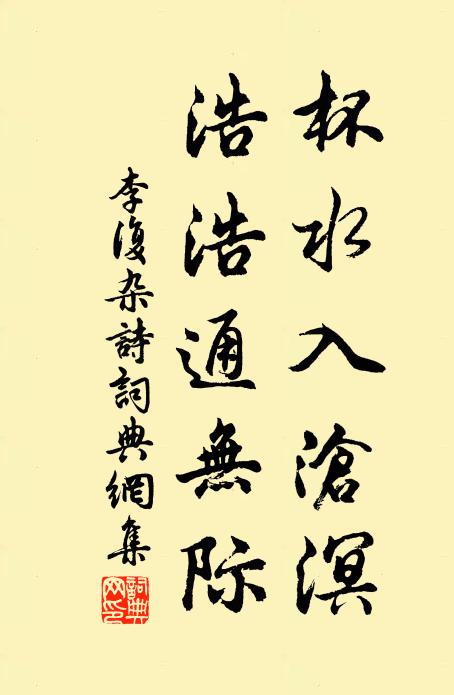 杯水入滄溟
浩浩通無际
李復杂詩詞典網集
詞典
网印